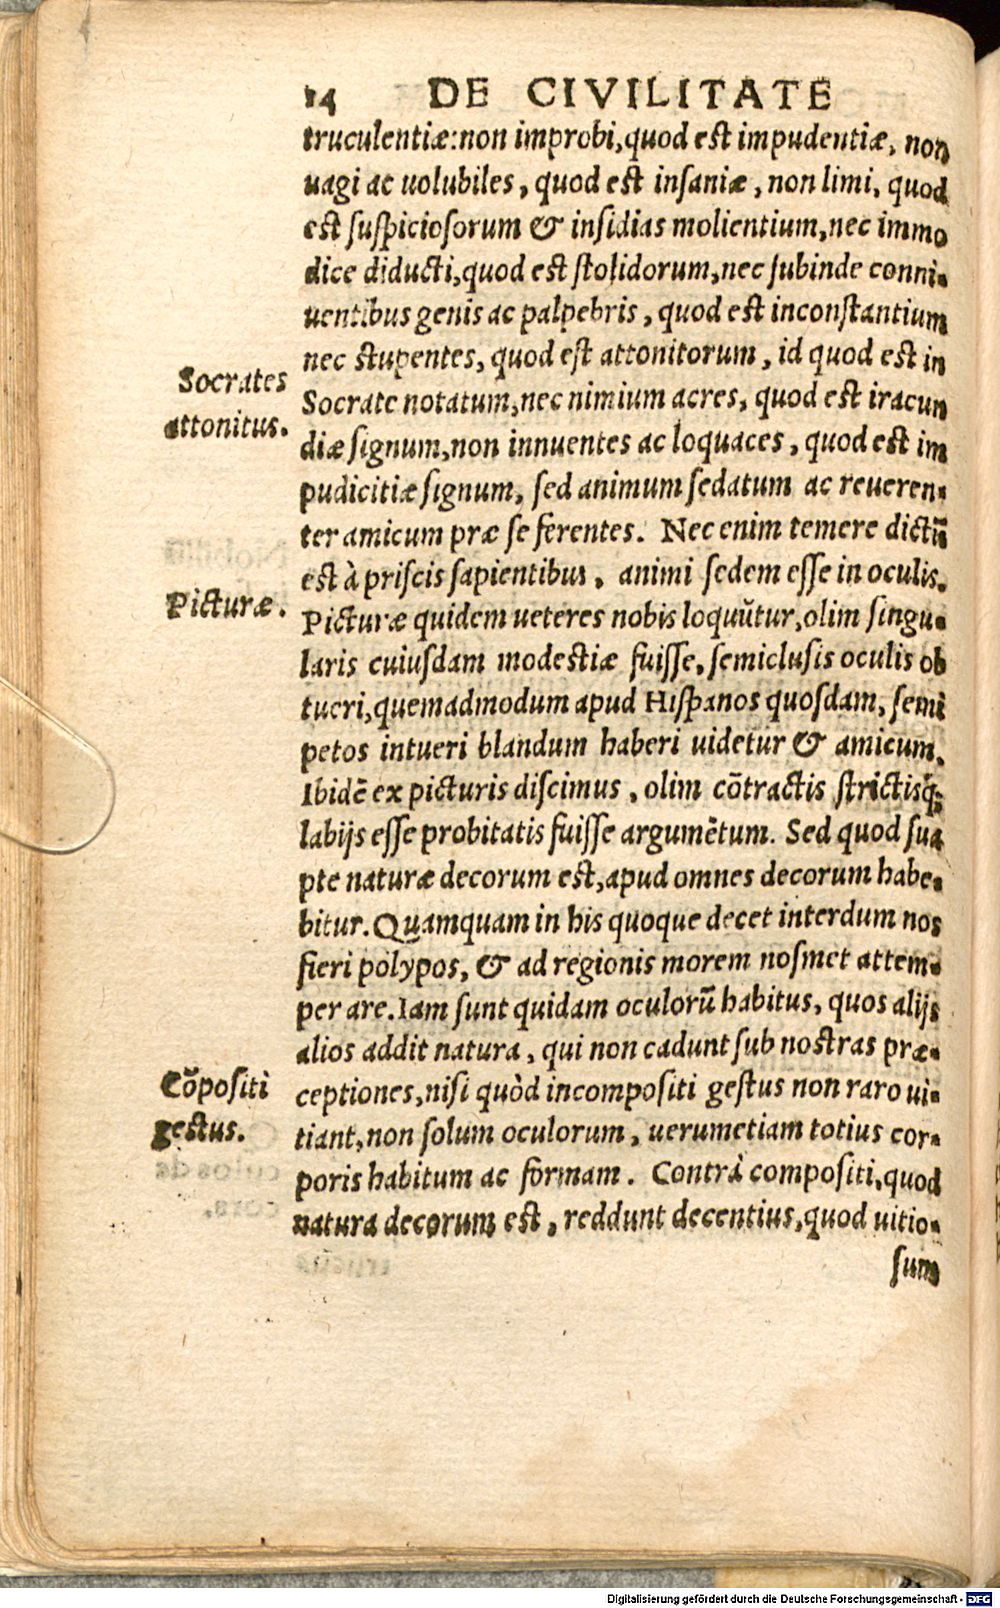 14 DE CIVILITATE
truculentiæ: non improbi, quod est impudentiæ, non
uagi ac uolubiles, quod est insaniæ, non limi, quod
est suspiciosorum & insidias molientium, nec immo
dice diducti, quod est stolidorum, nec subinde conni-
uentibus genis ac palpebris, quod est inconstantium
nec stupentes, quod est attonitorum, id quod est in
Socrates
attonitus.
Socrate notatum, nec nimium acres, quod est iracun
diæ signum, non innuentes ac loquaces, quod est im
pudicitiæ signum, sed animum sedatum ac reueren-
ter amicum præ se ferentes. Nec enim temere dictū
est à priscis sapientibus, animi sedem esse in oculis.
Picturæ.
Picturæ quidem ueteres nobis loquūtur, olim singu-
laris cuiusdam modestiæ fuisse, semiclusis oculis ob
tueri, quemadmodum apud Hispanos quosdam, semi
petos intueri blandum haberi uidetur & amicum.
Ibidē ex picturis discimus, olim cōtractis strictisq;
labijs esse probitatis fuisse argumētum. Sed quod sua
pte naturæ decorum est, apud omnes decorum habe-
bitur. Quamquam in his quoque decet interdum nos
fieri polypos, & ad regionis morem nosmet attem-
per are. Iam sunt quidam oculorū habitus, quos alijs
alios addit natura, qui non cadunt sub nostras præ-
Cōpositi
gestus.
ceptiones, nisi quòd incompositi gestus non raro ui-
tiant, non solum oculorum, uerumetiam totius cor-
poris habitum ac formam. Contrà compositi, quod
natura decorum est, reddunt decentius, quod uitio-
sum
Digitalisierung gefördert durch die Deutsche Forschungsgemeinschaft - DFG